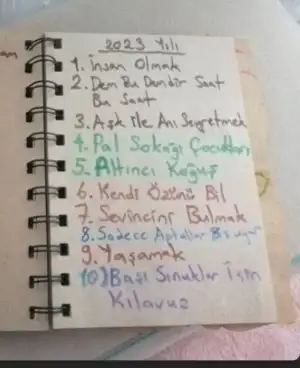 2023 Yılı
1. İnsan Olmak
2. Dem Bu Demdir Saat
Bu Saat
3. Aşk ile Anı Seyretmek
4. Pal Sokağı Çocukları
5. Altıncı Koğuş
6. Kendi Özünü Bil
7. Sevincini Bulmak
8. Sadece Aptallar 8 s uyur
9. Yaşamak
10) Başı Sınuklar İçin
Kılavuz